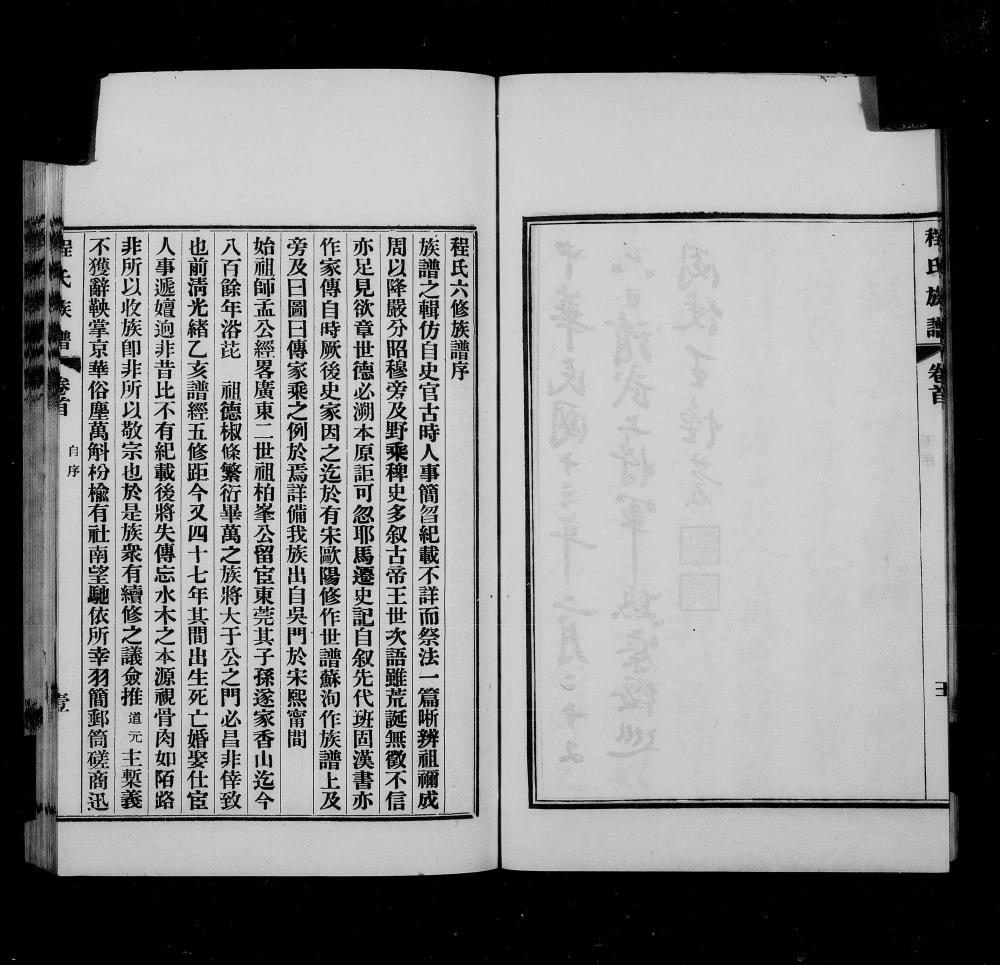 程氏族譜
卷首
程氏六修族譜序
族譜之輯仿自史官古時人事簡畧紀載不詳而祭法一篇晰辨祖禰成
周以降嚴分昭穆旁及野乘稗史多叙古帝王世次語雖荒誕無徵不信
亦足見欲章世德必溯本原詎可忽耶馬遷史記自叙先代班固漢書亦
作家傳自時厥後史家因之迄於有宋歐陽修作世譜蘇洵作族譜上及
旁及曰圖曰傳家乘之例於焉詳備我族出自吳門於宋熙甯間
始祖師孟公經畧廣東二世祖柏峯公留宦東莞其子孫遂家香山迄今
八百餘年浴芘　祖德椒條繁衍畢萬之族將大于公之門必昌非倖致
也前清光緒乙亥譜經五修距今又四十七年其間出生死亡婚娶仕宦
人事遞嬗逈非昔比不有紀載後將失傳忘水木之本源視骨肉如陌路
非所以收族卽非所以敬宗也於是族衆有續修之議僉推道元主槧義
不獲辭鞅掌京華俗塵萬斛枌楡有社南望馳依所幸羽簡郵筒磋商迅
程氏族譜
卷首
自序
壹